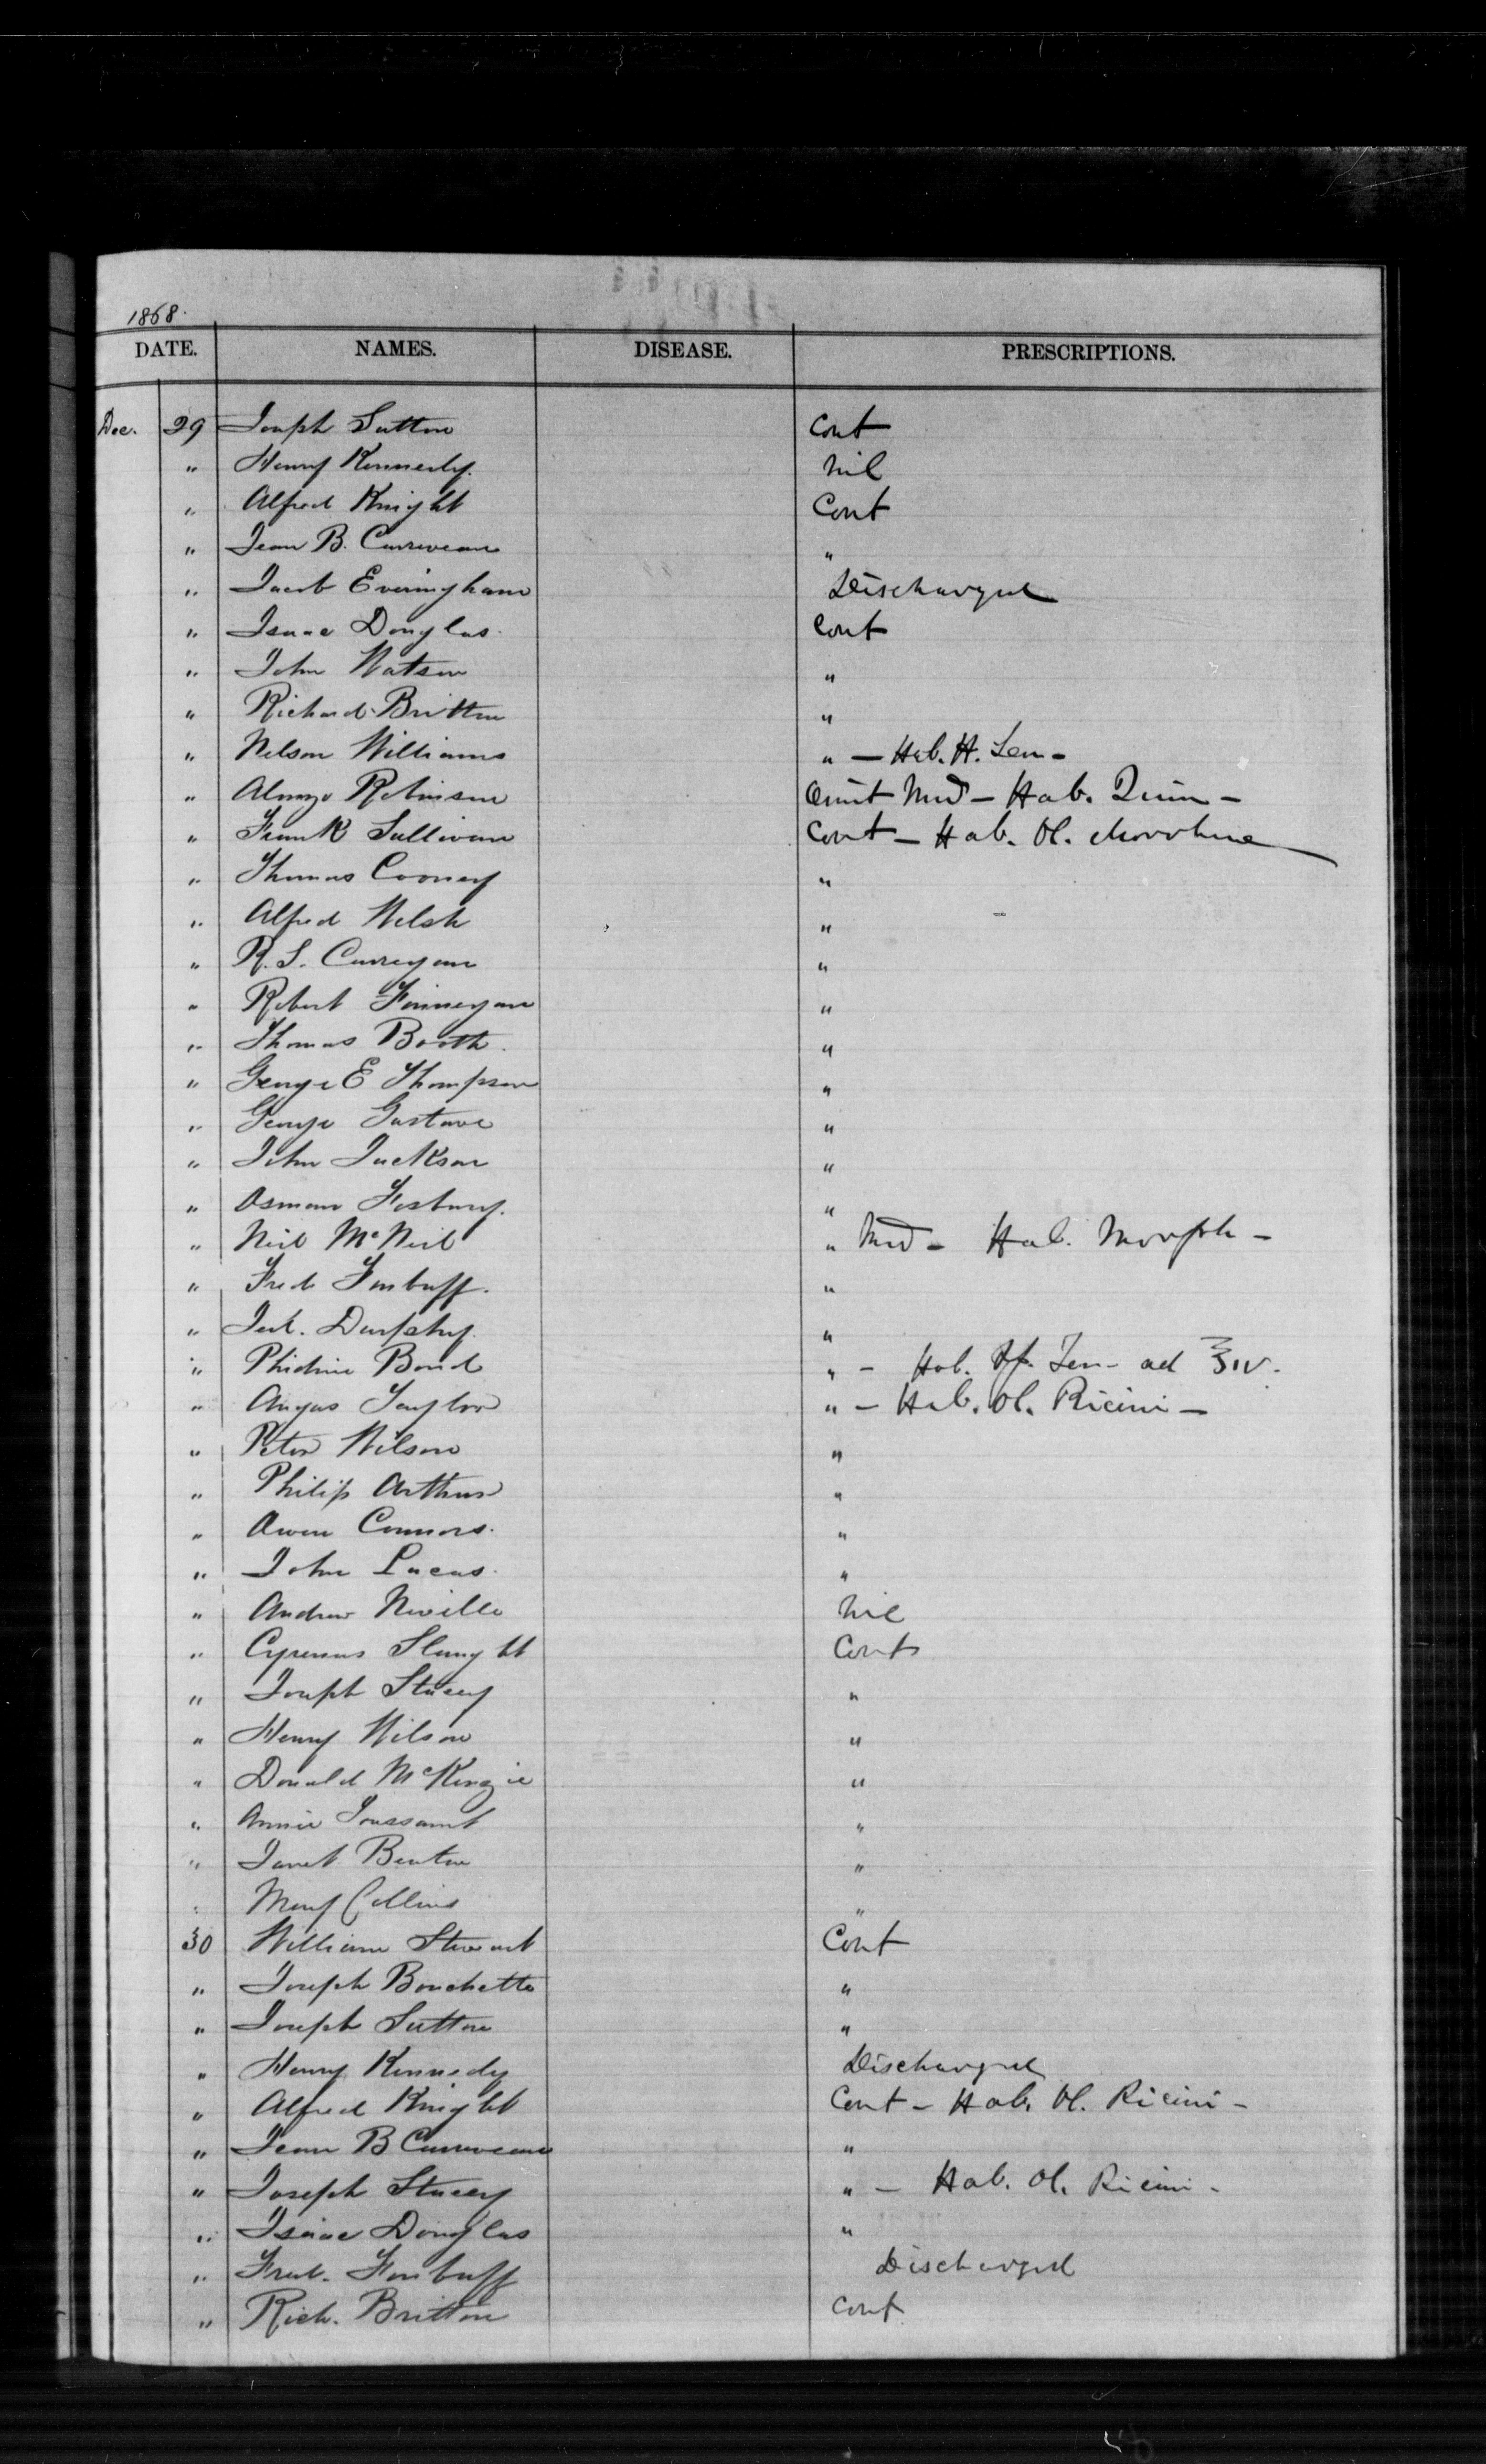 1868.
DATE. NAMES. DISEASE. PRESCRIPTIONS.
Dec. 29 Joseph Sutton Cont
" Henry Kennedy. Nil
" Alfred Knight Cont
" Jean B. "
" Jacob Everingham Discharged
" Isaac Douglas. Cont
" John Watson "
" Richard Britton "
" Nelson Williams " — Hab. H. Sen -
" Alonzo Robinson Omit Md — Hab. Quin —
" Frank Sullivan Cont — Hab. Ol. Morrhuae
" Thomas Cooney "
" Alfred Welsh "
" R. S. "
" Robert Finnegan "
" Thomas Booth. "
" George E Thompson "
" George Gustave "
" John Jackson "
" Osman Fosbury. "
" Neil McNeil " Md — Hab. Morph —
" Fred "
" "
" Bond " - Hab. Sen - ad ʒiv.
" Angus Taylor " — Hab. Ol. Ricini —
" Peter Wilson "
" Philip Arthur "
" Owen Connors. "
" John Lucas. "
" Andrew Neville Nil
" Cyrenus Slaught Cont
" Joseph Stacey "
" Henry Wilson "
" Donald McKenzie "
" Annie Toussaint "
" Janet Benton "
" Mary Collins "
30 William Stewart Cont
" Joseph Bouchette "
" Joseph Sutton "
" Henry Kennedy Discharged
" Alfred Knight Cont — Hab. Ol. Ricini —
" Jean B "
" Joseph Stacey " — Hab. Ol. Ricini -
" Isaac Douglas "
" Fred. Discharged
" Rich. Britton Cont